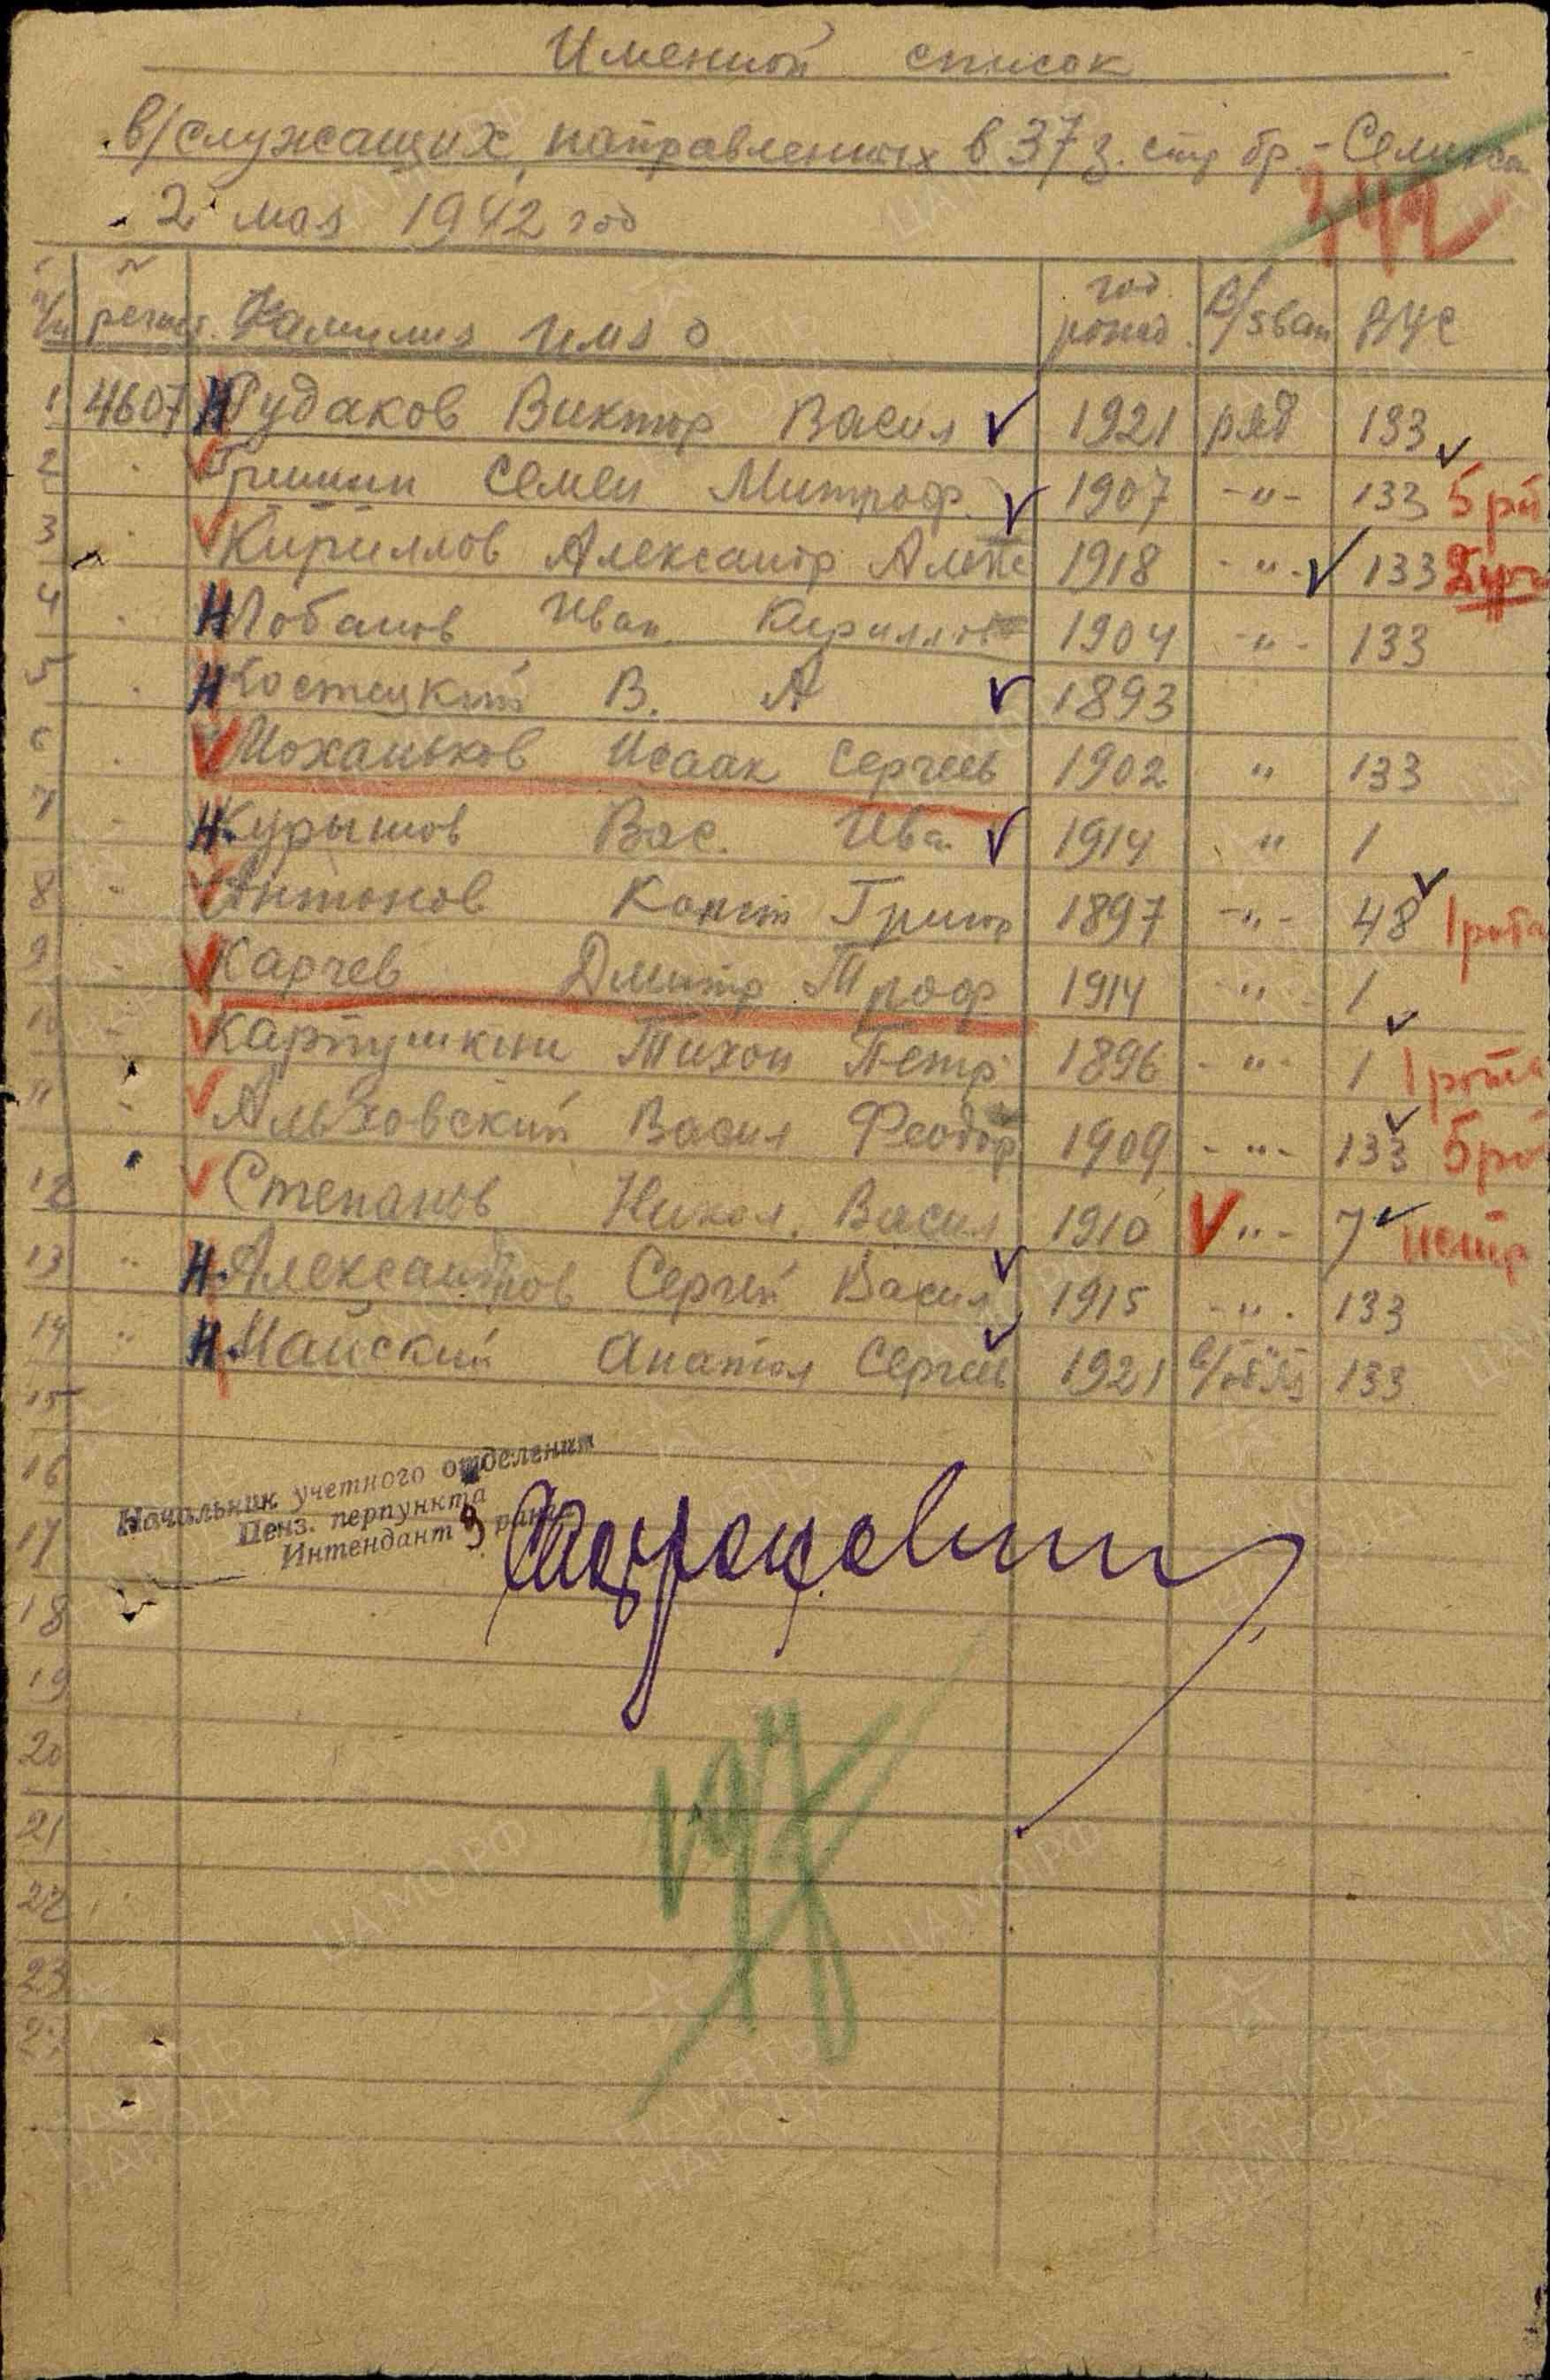 Именной список
в/служащих, направленных в 37 з. стр бр. - Селикса
2 мая 1942 год
342
№ п/п № регист. Фамилия Имя О год рожд. В/зван ВУС
1 4607 Н Рудаков Виктор Васил 1921 ряд 133
2 " Гришин Семен Митроф. 1907 -"- 133 5 рот
3 " Кириллов Александр 1918 -"- 133
4 " Н Лобанов Иван Кириллов 1904 -"- 133
5 " Н Костецкий В. А 1893
6 " Моханьков Исаак Сергеев 1902 " 133
7 " Н Курышов Вас. Ива 1914 " 1
8 " Антонов Конст Григор 1897 -"- 48 1 рота
9 " Карчев Дмитр Троф 1914 -"- 1
10 " Карпушкин Тихон Петр 1896 -"- 1 1 рота
11 " Альховский Васил Феодор 1909 -"- 133 5 ро
12 Степанов Никол. Васил 1910 -"- 7
13 " Н Александров Сергей Васил 1915 -"- 133
14 " Н Майский Анатол Сергеев 1921 133
15
16
Начальник учетного отделения
Пенз. перпункта
17
Интендант 3 ранга
18
19
20
21
22
23
ЦАМО РФ
ПАМЯТЬ НАРОДА